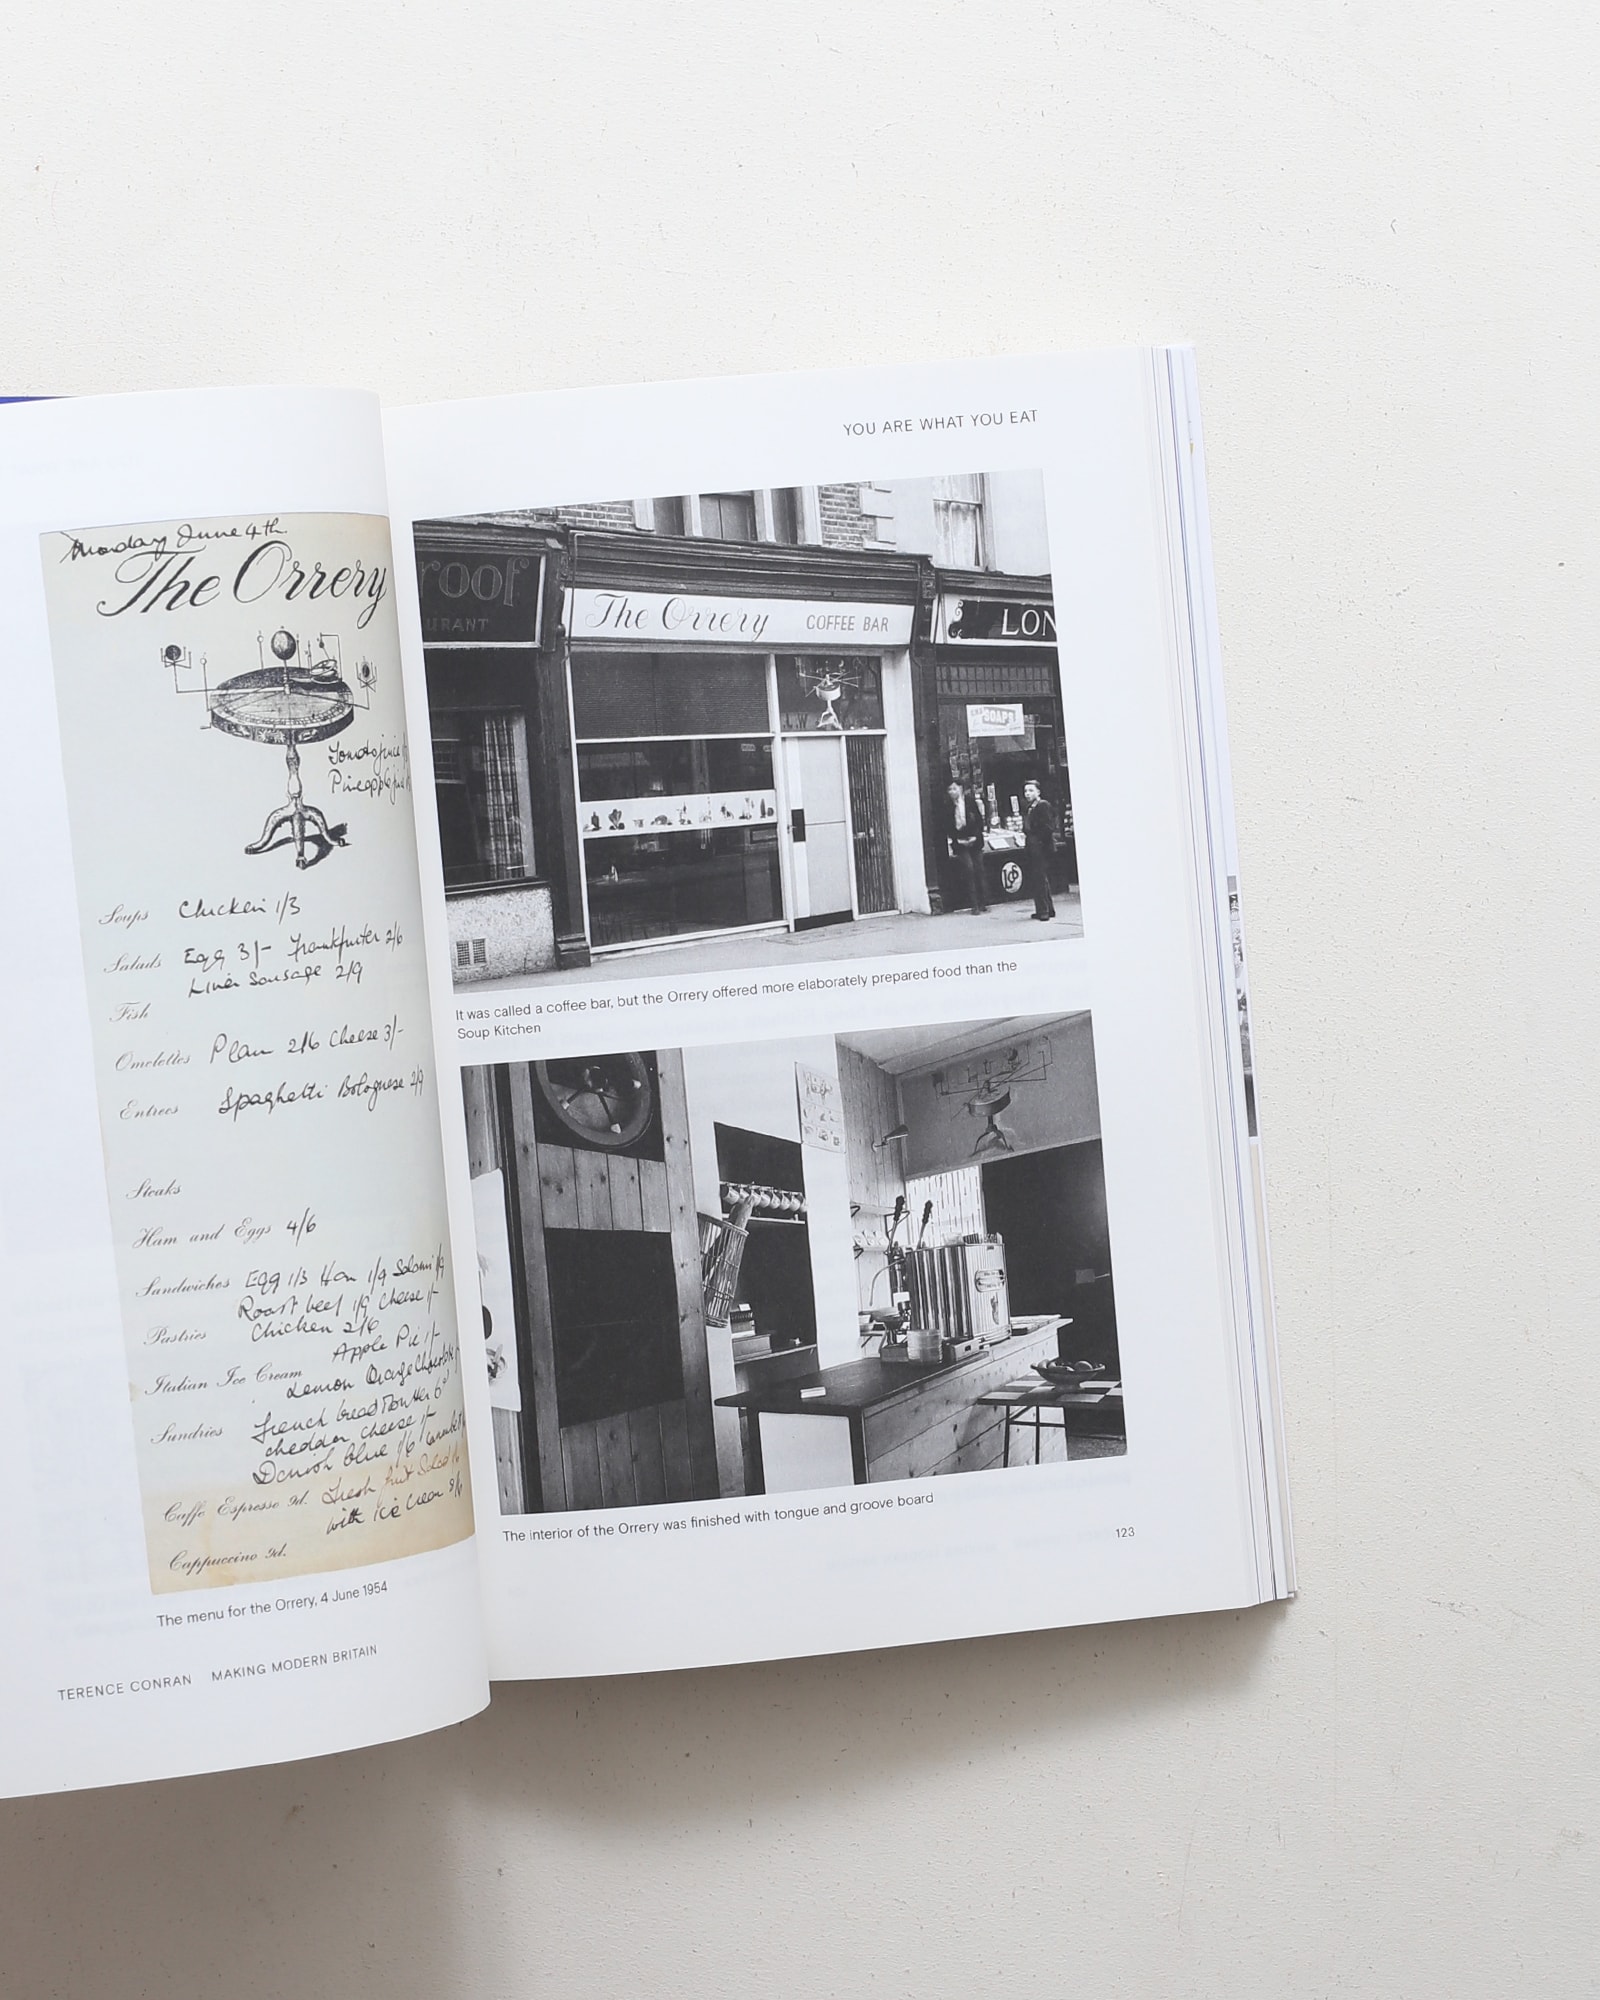 Monday June 4th.
The Orrery
Tomato juice
Pineapple juice
Soups Chicken 1/3
Salads Egg 3/- Frankfurter 2/6
Liver Sausage 2/9
Fish
Omelettes Plain 2/6 Cheese 3/-
Entrees Spaghetti Bolognese 2/9
Steaks
Ham and Eggs 4/6
Sandwiches Egg 1/3 Ham 1/9 Salami 1/9
Roast beef 1/9 Cheese 1/-
Chicken 2/6
Pastries Apple Pie 1/-
Italian Ice Cream Lemon Orange Chocolate
Sundries French bread Butter 6d
cheddar cheese 1/-
Danish blue 1/6
Caffe Espresso 9d. Fresh fruit Salad 1/6
with ice cream
Cappuccino 9d.
The menu for the Orrery, 4 June 1954
TERENCE CONRAN MAKING MODERN BRITAIN
YOU ARE WHAT YOU EAT
roof
URANT
The Orrery COFFEE BAR
LON
SOAPS
It was called a coffee bar, but the Orrery offered more elaborately prepared food than the
Soup Kitchen
The interior of the Orrery was finished with tongue and groove board
123